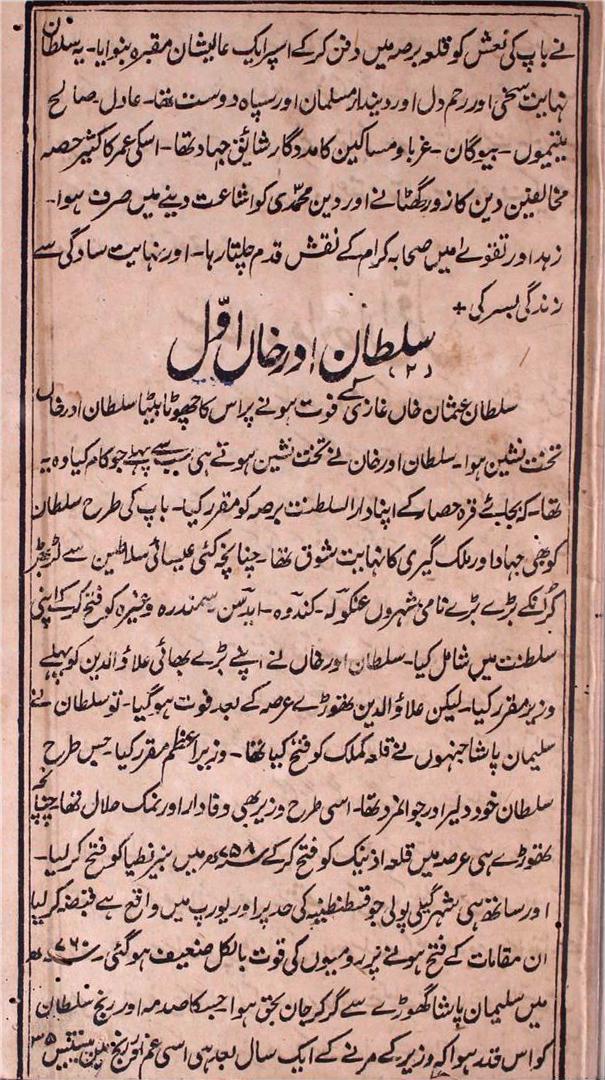 نے باپ کی نعش کو قلعہ برصہ میں دفن کر کے اسپر ایک عالیشان مقبرہ بنوایا۔ یہ سلطان
نہایت سخی اور رحم دل اور دیندار مسلمان اور سپاہ دوست تھا۔ عادل۔ صالح
یتیموں۔ بیوگان۔ غربا و مساکین کا مددگار شایق جہاد تھا۔ اسکی عمر کا کثیر حصہ
مخالفین دین کا زور گھٹانے اور دین محمدی کو اشاعت دینے میں صرف ہوا۔
زہد اور تقوےٰ میں صحابہ کرام کے نقش قدم چلتا رہا۔ اور نہایت سادگی سے
زندگی بسر کی +
سلطان اور خاں اوّل
(۲)
سلطان عثمان خاں غازی کے فوت ہونے پر اس کا چھوٹا بیٹا سلطان اور خاں
تخت نشین ہوا۔ سلطان اور خان نے تخت نشین ہوتے ہی سب سے پہلے جو کام کیا وہ یہ
تھا۔ کہ بجائے قرہ حصار کے اپنا دار السلطنت برصہ کو مقرر کیا۔ باپ کی طرح سلطان
کو بھی جہاد اور ملک گیری کا نہایت شوق تھا۔ چنانچہ کئی عیسائی سلاطین سے لڑ بھڑ
کر انکے بڑے بڑے نامی شہروں عنکولہ۔ کندوہ۔ ایدسن سمندرہ وغیرہ کو فتح کر کے اپنی
سلطنت میں شامل کیا۔ سلطان اور خاں نے اپنے بڑے بھائی علاؤ الدین کو پہلے
وزیر مقرر کیا۔ لیکن علاؤ الدین تھوڑے عرصہ کے بعد فوت ہو گیا۔ تو سلطان نے
سلیمان پاشا جنہوں نے قلعہ کملک کو فتح کیا تھا۔ وزیر اعظم مقرر کیا۔ جس طرح
سلطان خود دلیر اور جوانمرد تھا۔ اسی طرح وزیر بھی وفادار اور نمک حلال تھا چنانچہ
تھوڑے ہی عرصہ میں قلعہ اذنیک کو فتح کر کے ۷۵۸ھ میں بنیر نطیا کو فتح کر لیا۔
اور ساتھ ہی شہر گیلی پولی جو قسطنطنیہ کی حد پر اور یورپ میں واقع ہے قبضہ کر لیا
ان مقامات کے فتح ہونے پر رومیوں کی قوت بالکل ضعیف ہو گئی۔ ۷۶۰ھ
میں سلیمان پاشا گھوڑے سے گر کر جان بحق ہوا۔ جسکا صدمہ اور رنج سلطان
کو اس قدر ہوا کہ وزیر کے مرنے کے ایک سال بعد ہی اسی غم اور رنج میں پینتیس ۳۵